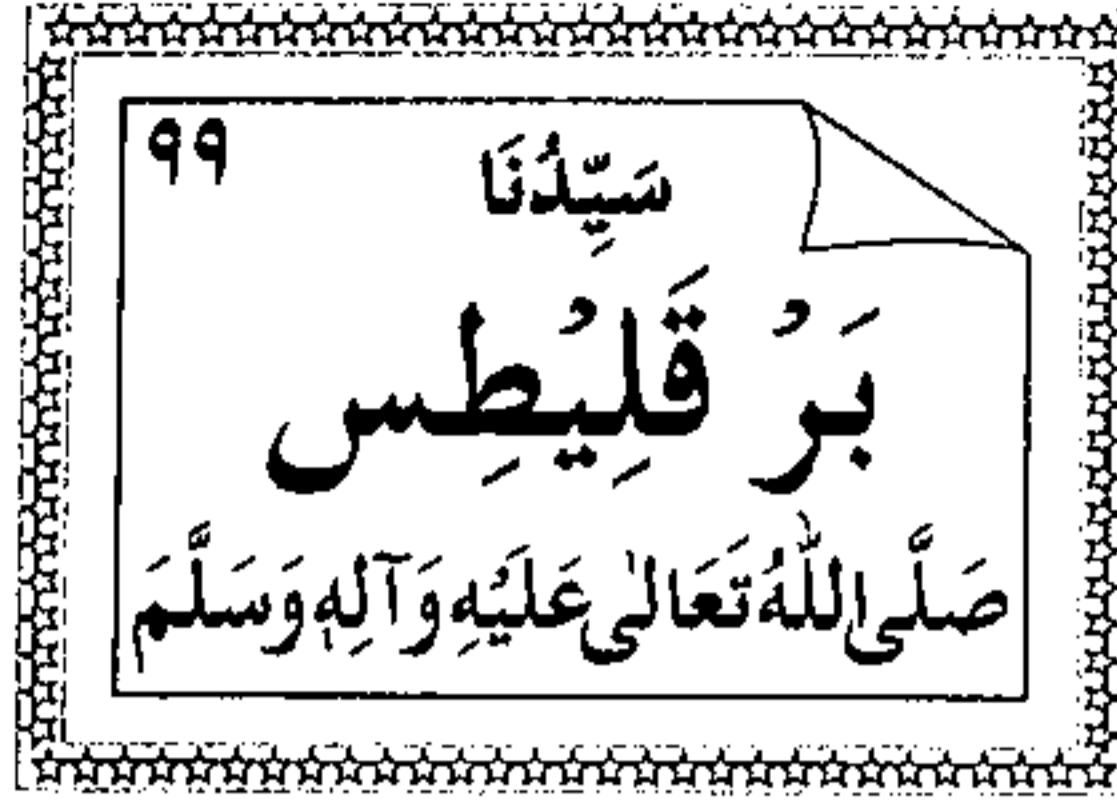 ۹۹
سَيِّدُنَا
بَرْ قَلِيْطِس
صَلَّی اللّٰهُ تَعَالٰی عَلَيْهِ وَآلِهٖ وَسَلَّمَ